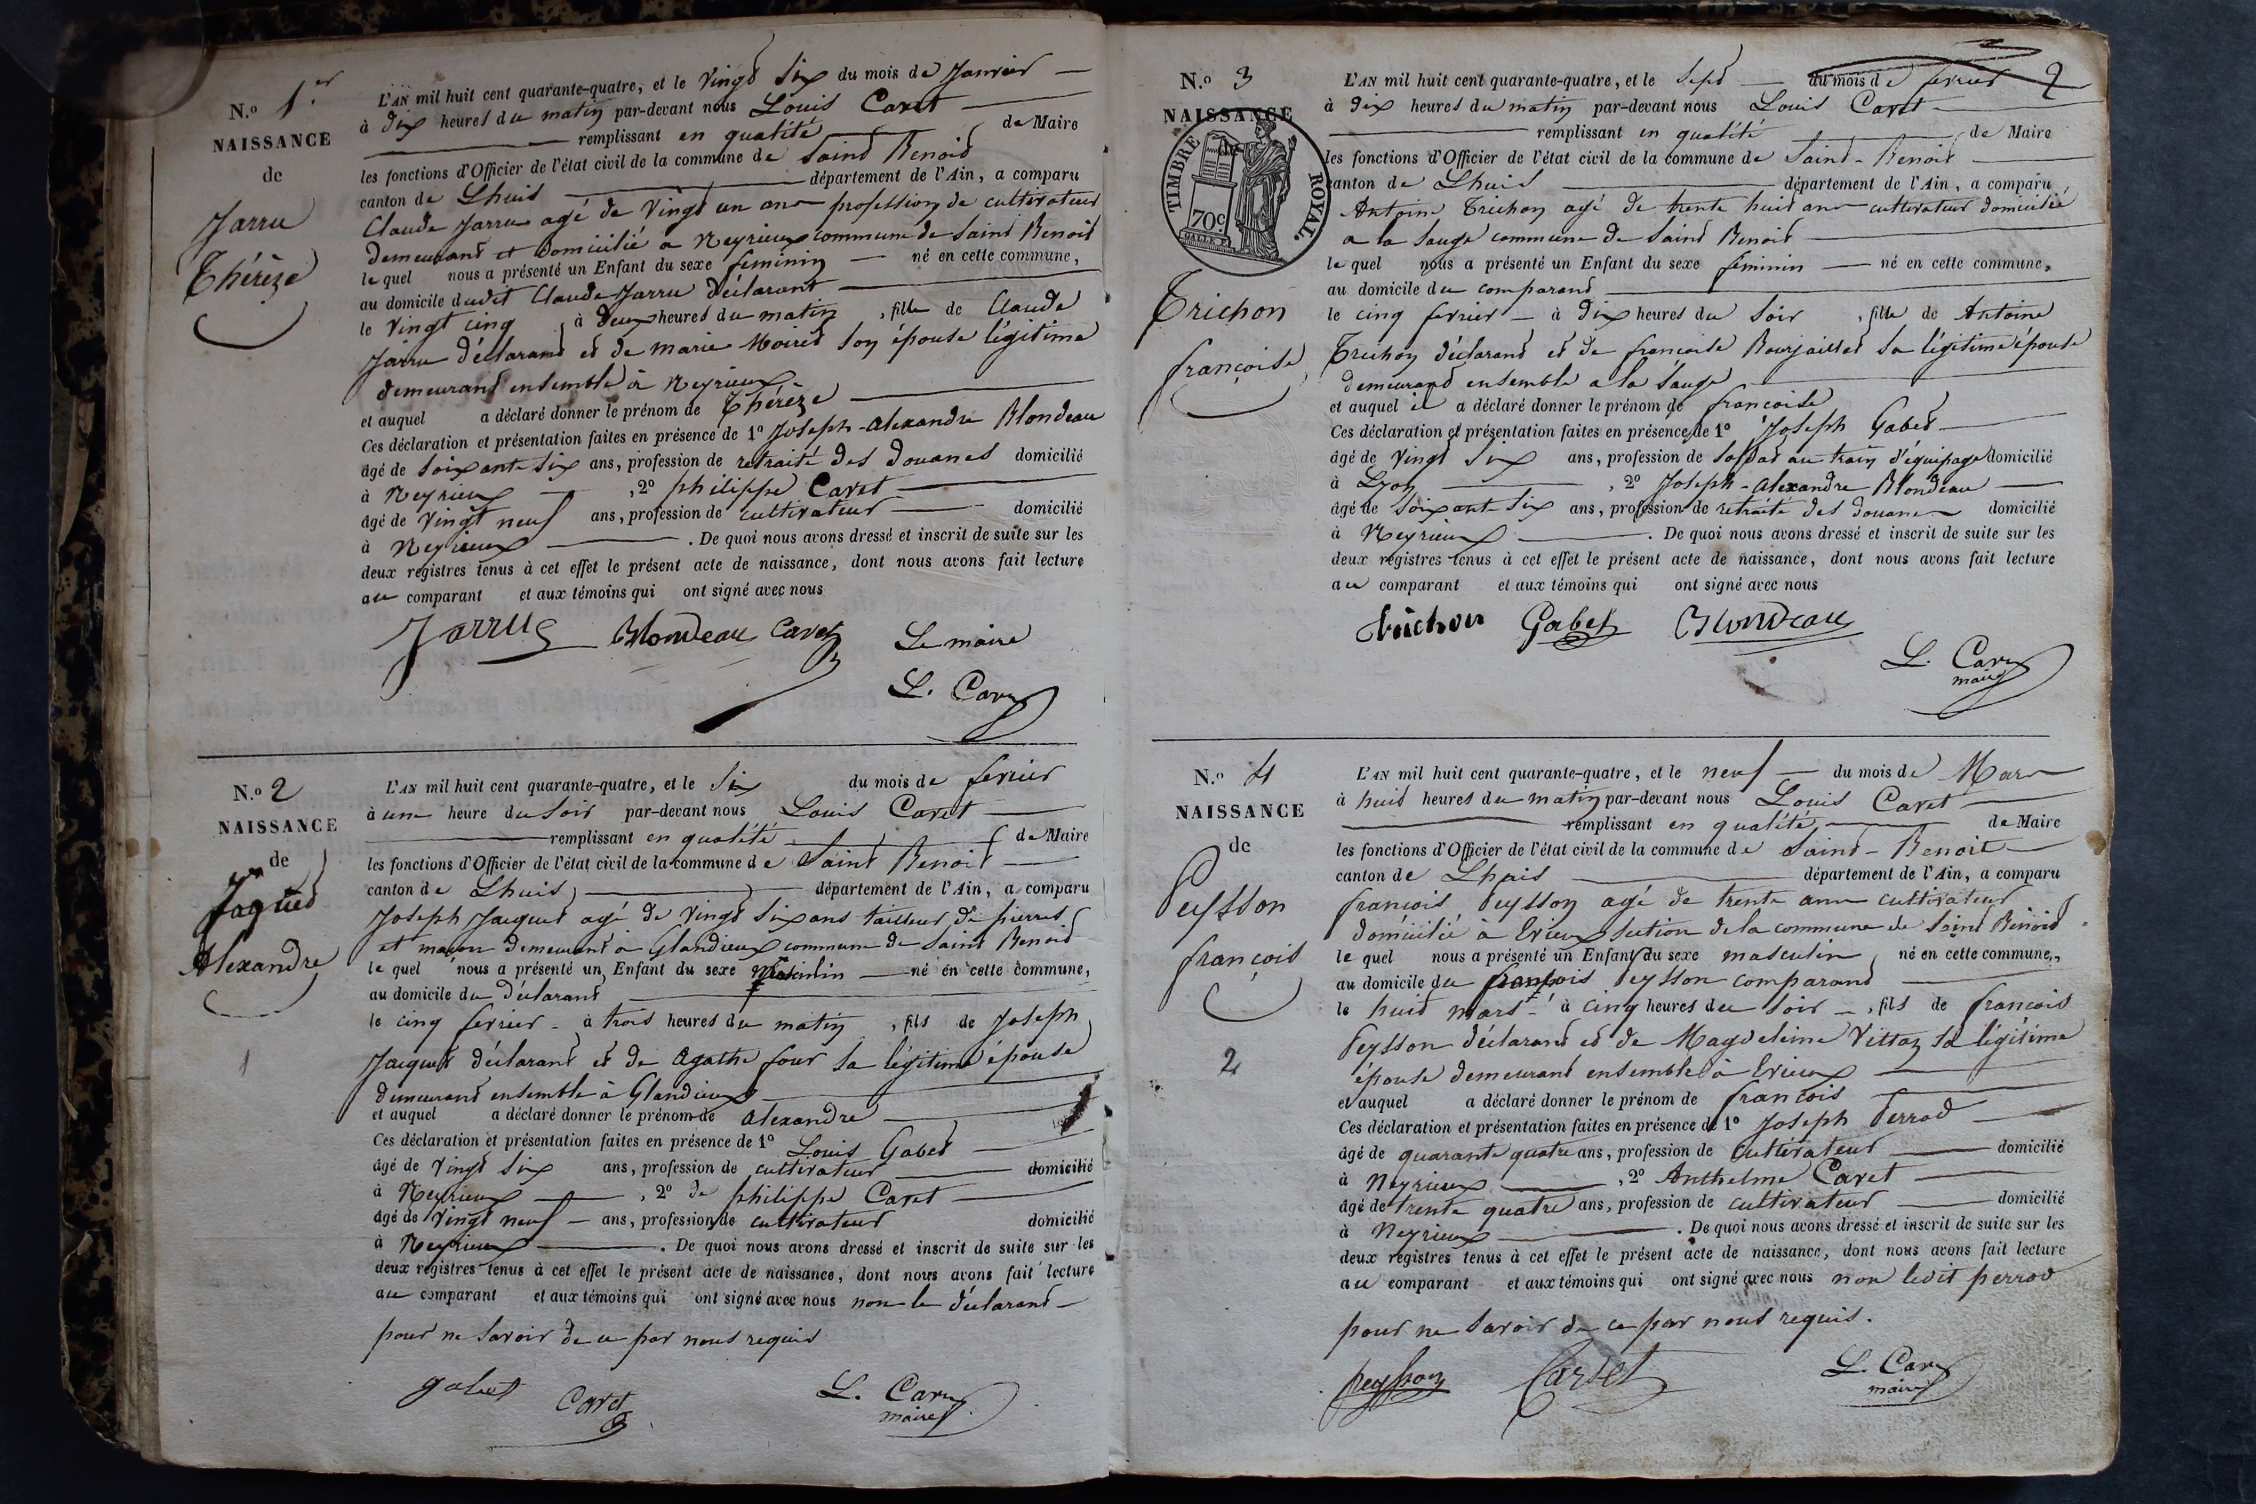 N.º 1.er
NAISSANCE
de
Jarru
Thérèze
L'AN mil huit cent quarante-quatre, et le vingt six du mois de Janvier
à dix heures du matin par-devant nous Louis Cavet
remplissant en qualité de Maire
les fonctions d'Officier de l'état civil de la commune de Saint Benoit
canton de Lhuis département de l'Ain, a comparu
Claude Jarru agé de vingt un ans profession de cultivateur
demeurant et domicilié a Neyrieux commune de Saint Benoit
le quel nous a présenté un Enfant du sexe feminin né en cette commune,
au domicile dudit Claude Jarru déclarant
le vingt cinq à deux heures du matin , fille de Claude
Jarru déclarant et de marie Moiret son épouse légitime
demeurant ensemble à Neyrieux
et auquel a déclaré donner le prénom de Thérèze
Ces déclaration et présentation faites en présence de 1º Joseph-alexandre Blondeau
âgé de soixante six ans, profession de retraité des douanes domicilié
à Neyrieux , 2º philippe Cavet
âgé de vingt neuf ans, profession de cultivateur domicilié
à Neyrieux . De quoi nous avons dressé et inscrit de suite sur les
deux registres tenus à cet effet le présent acte de naissance, dont nous avons fait lecture
au comparant et aux témoins qui ont signé avec nous
Jarru Blondeau Cavet
Le maire
L. Cavet
N.º 2
NAISSANCE
de
Jaques
Alexandre
1
L'AN mil huit cent quarante-quatre, et le six du mois de fevrier
à une heure du soir par-devant nous Louis Cavet
remplissant en qualité de Maire
les fonctions d'Officier de l'état civil de la commune de Saint Benoit
canton de Lhuis département de l'Ain, a comparu
Joseph Jacques agé de vingt six ans tailleur de pierres
et maçon demeurant à Glandieux commune de Saint Benoit
le quel nous a présenté un Enfant du sexe masculin né en cette commune,
au domicile du déclarant
le cinq fevrier à trois heures du matin , fils de Joseph
Jacques déclarant et de Agathe four sa légitime épouse
demeurant ensemble à Glandieux
et auquel a déclaré donner le prénom de alexandre
Ces déclaration et présentation faites en présence de 1º Louis Gabet
âgé de vingt six ans, profession de cultivateur domicilié
à Neyrieux , 2º de philippe Cavet
âgé de vingt neuf ans, profession de cultivateur domicilié
à Neyrieux . De quoi nous avons dressé et inscrit de suite sur les
deux registres tenus à cet effet le présent acte de naissance, dont nous avons fait lecture
au comparant et aux témoins qui ont signé avec nous non le déclarant
pour ne savoir de ce par nous requis
gabet Cavet L. Cavet
maire
2
N.º 3
NAISSANCE
TIMBRE ROYAL.
70c.
Trichon
françoise
L'AN mil huit cent quarante-quatre, et le sept du mois de fevrier
à dix heures du matin par-devant nous Louis Cavet
remplissant en qualité de Maire
les fonctions d'Officier de l'état civil de la commune de Saint-Benoit
canton de Lhuis département de l'Ain, a comparu
Antoine Trichon agé de trente huit ans cultivateur domicilié
a la Sauge commune de Saint Benoit
le quel nous a présenté un Enfant du sexe féminin né en cette commune,
au domicile du comparant
le cinq fevrier à dix heures du soir , fille de Antoine
Trichon déclarant et de francoise Bourjaillat sa légitime épouse
demeurant ensemble a la Sauge
et auquel il a déclaré donner le prénom de francoise
Ces déclaration et présentation faites en présence de 1º Joseph Gabet
âgé de vingt six ans, profession de soldat au train d'équipage domicilié
à Lyon , 2º Joseph-alexandre Blondeau
âgé de soixante six ans, profession de retraité des douanes domicilié
à Neyrieux . De quoi nous avons dressé et inscrit de suite sur les
deux registres tenus à cet effet le présent acte de naissance, dont nous avons fait lecture
au comparant et aux témoins qui ont signé avec nous
trichon Gabet Blondeau
L. Cavet
maire
N.º 4
NAISSANCE
de
Peysson
françois
2
L'AN mil huit cent quarante-quatre, et le neuf du mois de Mars
à huit heures du matin par-devant nous Louis Cavet
remplissant en qualité de Maire
les fonctions d'Officier de l'état civil de la commune de Saint-Benoit
canton de Lhuis département de l'Ain, a comparu
francois Peysson agé de trente ans cultivateur
domicilié à Evieux section de la commune de Saint Benoit
le quel nous a présenté un Enfant du sexe masculin né en cette commune,
au domicile du françois Peysson comparant
le huit mars à cinq heures du soir , fils de francois
Peysson déclarant et de Magdeleine Vittoz sa légitime
épouse demeurant ensemble à Evieux
et auquel a déclaré donner le prénom de francois
Ces déclaration et présentation faites en présence de 1º Joseph Perrod
âgé de quarante quatre ans, profession de cultivateur domicilié
à Neyrieux , 2º Anthelme Cavet
âgé de trente quatre ans, profession de cultivateur domicilié
à Neyrieux . De quoi nous avons dressé et inscrit de suite sur les
deux registres tenus à cet effet le présent acte de naissance, dont nous avons fait lecture
au comparant et aux témoins qui ont signé avec nous non ledit perrod
pour ne savoir de ce par nous requis.
peysson Carvet L. Cavet
maire